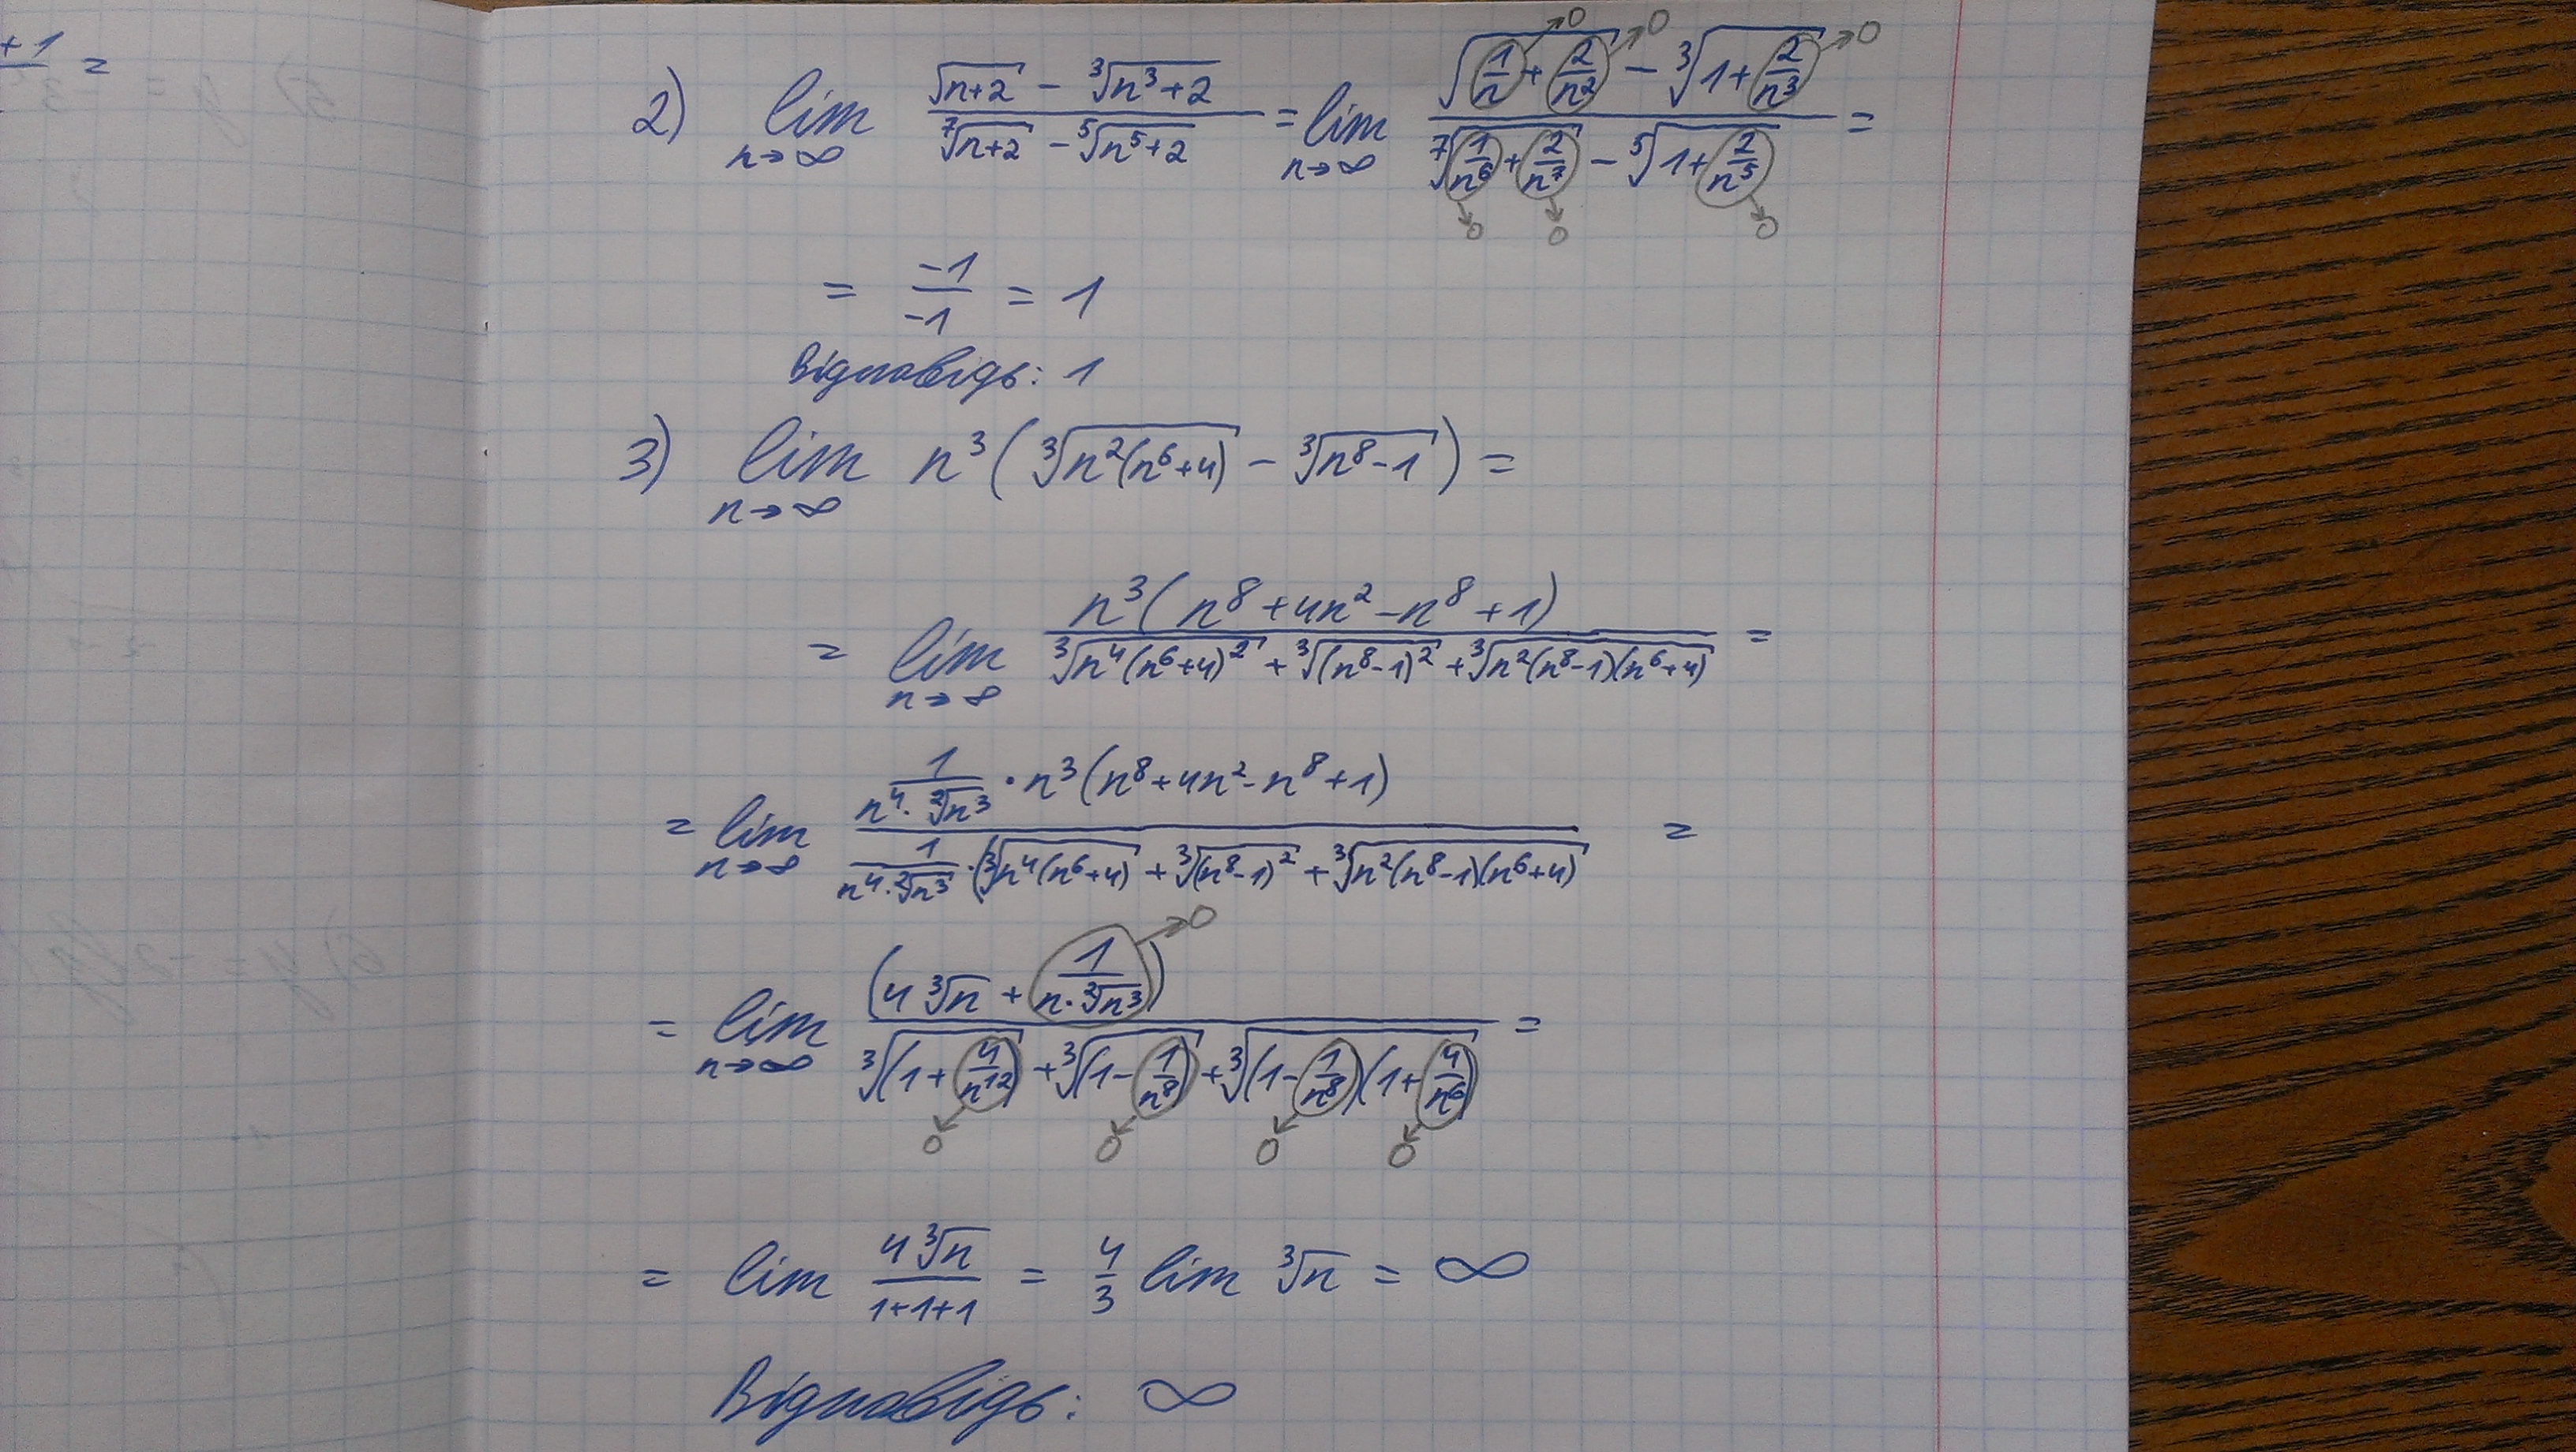 +1 =
2) lim n→∞ (√(n+2) - ∛(n³+2)) / (⁷√(n+2) - ⁵√(n⁵+2)) = lim n→∞ (√(1/n + 2/n²) - ∛(1 + 2/n³)) / (⁷√(1/n⁶ + 2/n⁷) - ⁵√(1 + 2/n⁵)) =
→0 →0 →0
→0 →0 →0
= -1/-1 = 1
Відповідь: 1
3) lim n→∞ n³(∛(n²(n⁶+4)) - ∛(n⁸-1)) =
= lim n→∞ n³(n⁸+4n²-n⁸+1) / (∛(n⁴(n⁶+4)²) + ∛((n⁸-1)²) + ∛(n²(n⁸-1)(n⁶+4))) =
= lim n→∞ (1/(n⁴·²√n³) · n³(n⁸+4n²-n⁸+1)) / (1/(n⁴·²√n³) · (∛(n⁴(n⁶+4)) + ∛((n⁸-1)²) + ∛(n²(n⁸-1)(n⁶+4))) =
→0
= lim n→∞ (4∛n + 1/(n·²√n³)) / (∛((1+4/n¹²)) + ∛((1-1/n⁸)) + ∛((1-1/n⁸)(1+4/n⁶))) =
→0 →0 →0 →0
= lim 4∛n / (1+1+1) = 4/3 lim ∛n = ∞
Відповідь: ∞